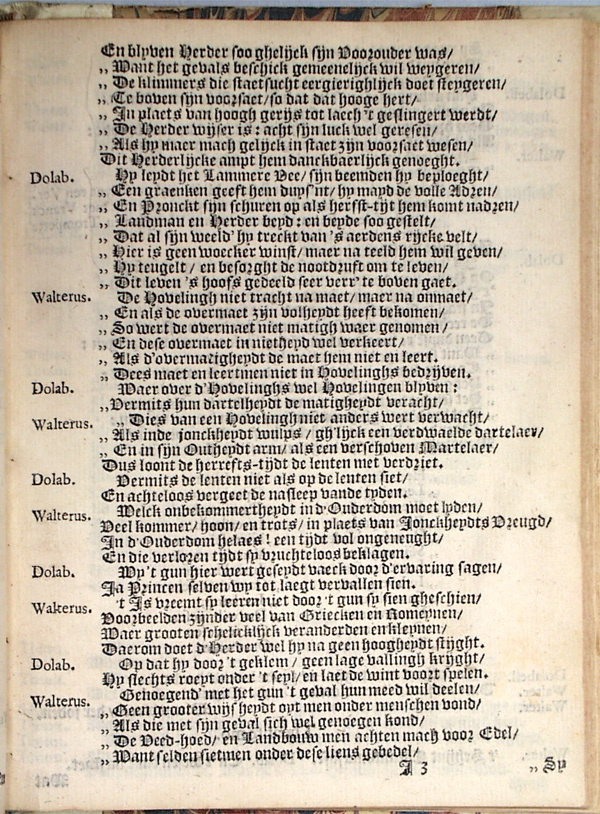 En blyven Herder soo ghelijck sijn Voorouder was/
„ Want het gevals beschick gemeenelijck wil weygeren/
„ De klimmers die staetsucht eergierighlijck doet steygeren/
„ Te boven sijn voorsaet/so dat dat hooge hert/
„ In plaets van hoogh gerijs tot laech 't geslingert werdt/
„ De Herder wijser is: acht sijn luck wel geresen/
„ Als hy maer mach gelijck in staet zijn voorsaet wesen/
Dit Herderlijcke ampt hem danckbaerlijck genoeght.
Dolab. Hy leydt het Lammere Vee/ sijn beemden hy beploeght/
„ Een graenken geeft hem duys'nt/ hy mayd de volle Adren/
„ En Pronckt sijn schuren op als herfst-tijt hem komt nadren/
„ Landman en Herder beyd: en beyde soo gestelt/
„ Dat al sijn weeld' hy treckt van 's aerdens rijcke velt/
„ Hier is geen woecker winst/ maer na teeld hem wil geven/
„ Hy teugelt / en besorght de nootdruft om te leven/
„ Dit leven 's hoofs gedeeld seer verr' te boven gaet.
Walterus. De Hovelingh niet tracht na maet/ maer na onmaet/
„ En als de overmaet zijn volheydt heeft bekomen/
„ So wert de overmaet niet matigh waer genomen/
„ En dese overmaet in nietheyd wel verkeert/
„ Als d'overmatigheydt de maet hem niet en leert.
„ Dees maet en leertmen niet in Hovelinghs bedrijven.
Dolab. Waer over d'Hovelinghs wel Hovelingen blyven:
„ Vermits hun dartelheydt de matigheydt veracht/
Walterus. „ Dies van een Hovelingh niet anders wert verwacht/
„ Als inde jonckheydt wulps / gh'lijck een verdwaelde dartelaer/
„ En in sijn Outheydt arm/ als een verschoven Martelaer/
Dus loont de herrefts-tijdt de lenten met verdriet.
Dolab. Vermits de lenten niet als op de lenten siet/
En achteloos vergeet de nasleep vande tyden.
Walterus. Welck onbekommertheydt in d'Ouderdom moet lyden/
Veel kommer/ hoon/ en trots/ in plaets van Jonckheydts Vreugd/
In d'Ouderdom helaes! een tijdt vol ongeneught/
En die verloren tijdt sy vruchteloos beklagen.
Dolab. Wy 't gun hier wert geseydt vaeck door d'ervaring sagen/
Ja Princen selven wy tot laegt vervallen sien.
Walterus. 't Is vreemt sy leeren niet door 't gun sy sien gheschien/
Voorbeelden zijnder veel van Griecken en Romeynen/
Waer grooten schelicklijck veranderden en kleynen/
Daerom doet d'Herder wel hy na geen hoogheydt stijght.
Dolab. Op dat hy door 't geklem / geen lage vallingh krijght/
Hy slechts roeyt onder 't seyl/ en laet de wint voort spelen.
Walterus. Genoegend' met het gun 't geval hun meed wil deelen/
„ Geen grooter wijsheydt oyt men onder menschen vond/
„ Als die met sijn geval sich wel genoegen kond/
„ De Veed-hoed/ en Landbouw men achten mach voor Edel/
„ Want selden sietmen onder dese liens gebedel/
I 3 „ Sy